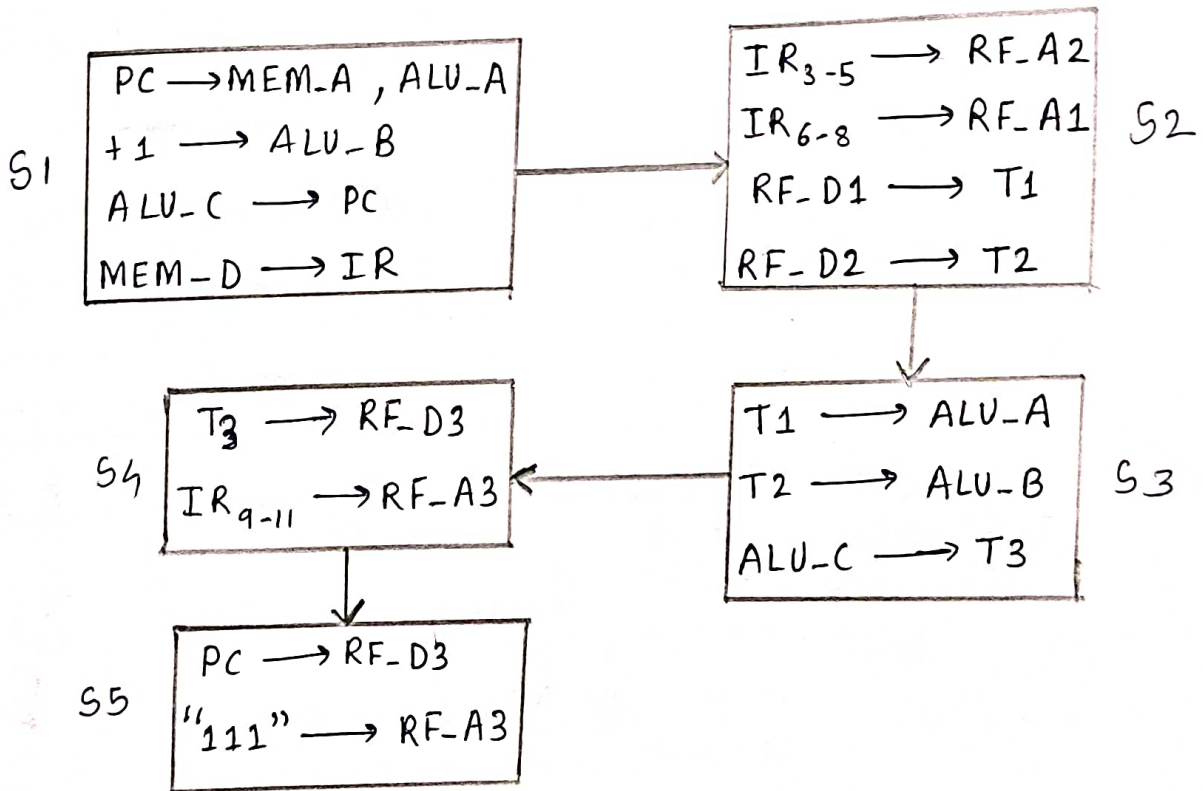 S1
PC → MEM_A , ALU_A
+1 → ALU_B
ALU_C → PC
MEM_D → IR
S2
IR3-5 → RF_A2
IR6-8 → RF_A1
RF_D1 → T1
RF_D2 → T2
S3
T1 → ALU_A
T2 → ALU_B
ALU_C → T3
S4
T3 → RF_D3
IR9-11 → RF_A3
S5
PC → RF_D3
"111" → RF_A3